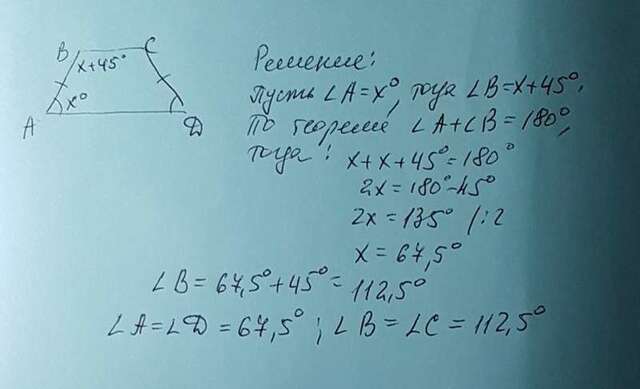 B C
x+45°
x°
A D
Решение:
Пусть ∠A=x°, тогда ∠B=x+45°.
По теореме ∠A+∠B=180°,
тогда: x+x+45°=180°
2x=180°-45°
2x=135° /:2
x=67,5°
∠B=67,5°+45°=112,5°
∠A=∠D=67,5°; ∠B=∠C=112,5°